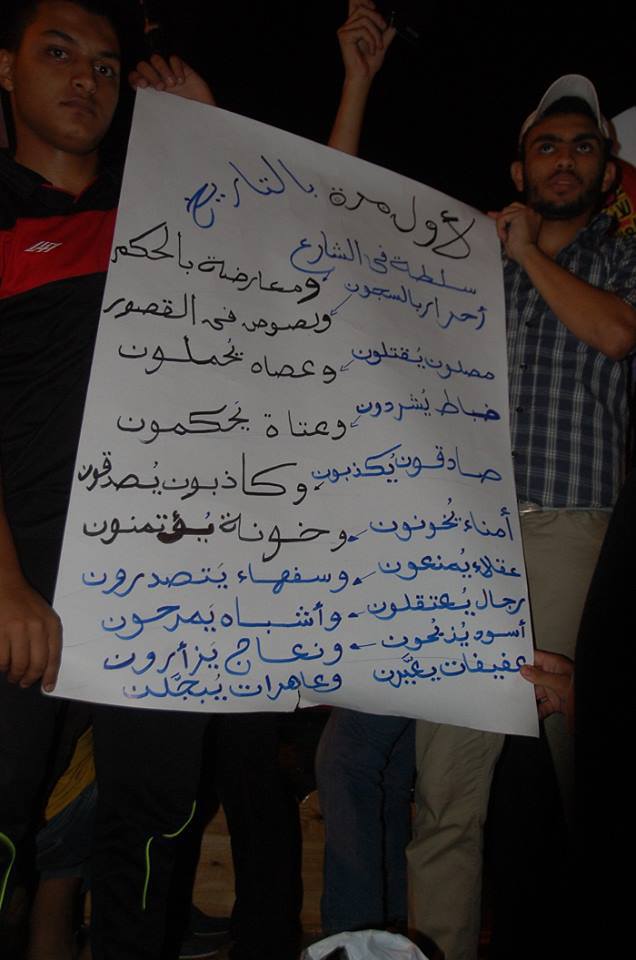 لأول مرة بالتاريخ
سلطة فى الشارع ومعارضة بالحكم
أحرار بالسجون ولصوص فى القصور
مصلون يُقتلون وعصاه يُحملون
ضباط يُشردون وعتاة يَحكمون
صادقون يُكذبون وكاذبون يُصدقون
أمناء يُخونون وخونة يُؤتمنون
عقلاء يُمنعون وسفهاء يَتصدرون
رجال يُعتقلون وأشباه يَمرحون
أسود يُذبحون ونعاج يزأرون
عفيفات يعيَّرن وعاهرات يُبجَّلن